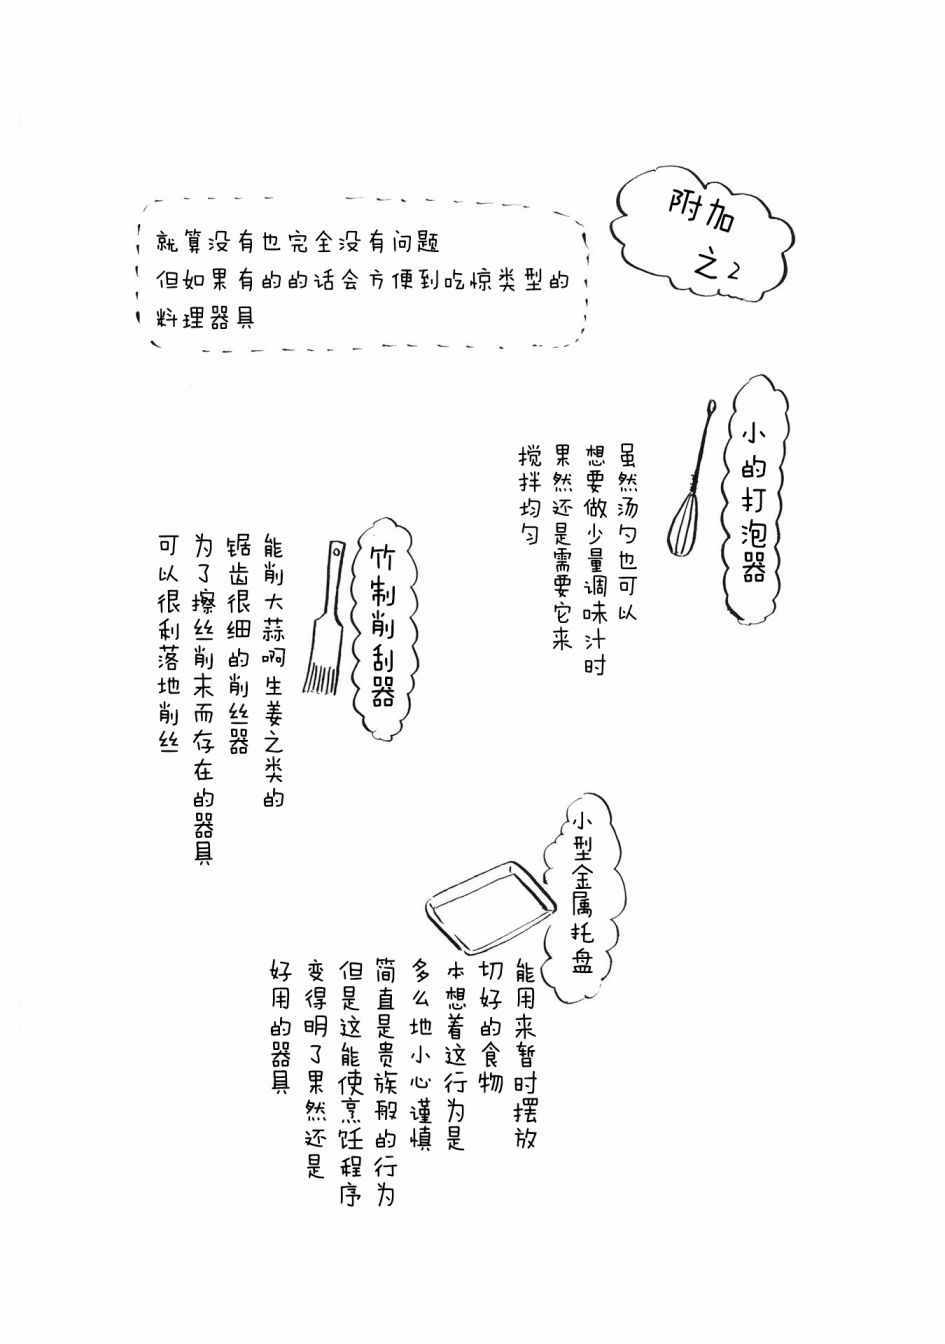 附加
之2
就算没有也完全没有问题
但如果有的的话会方便到吃惊类型的
料理器具
小的打泡器
虽然汤勺也可以
想要做少量调味汁时
果然还是需要它来
搅拌均匀
竹制削刮器
能削大蒜啊生姜之类的
锯齿很细的削丝器
为了擦丝削末而存在的器具
可以很利落地削丝
小型金属托盘
能用来暂时摆放
切好的食物
本想着这行为是
多么地小心谨慎
简直是贵族般的行为
但是这能使烹饪程序
变得明了果然还是
好用的器具